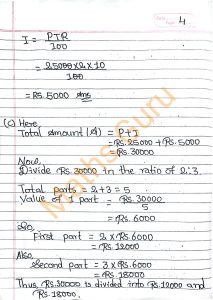 4
I = PTR
100
= 25000×2×10
100
= Rs. 5000 Ans
(c) Here,
Total Amount (A) = P+I
= Rs. 25000 + Rs. 5000
= Rs. 30000
Now,
Divide Rs. 30000 in the ratio of 2:3.
Total parts = 2+3 = 5
Value of 1 part = Rs. 30000
5
= Rs. 6000
So,
First part = 2 × Rs. 6000
= Rs. 12000
Also,
Second part = 3 × Rs. 6000
= Rs. 18000
Thus, Rs. 30000 is divided into Rs. 12000 and
Rs. 18000.
Maths Guru